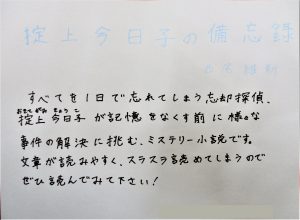 掟上今日子の備忘録
西尾維新
すべてを1日で忘れてしまう忘却探偵、
おきてがみ きょうこ
掟上今日子が記憶をなくす前に様々な
事件の解決に挑む、ミステリー小説です。
文章が読みやすく、スラスラ読めてしまうので
ぜひ読んでみて下さい!